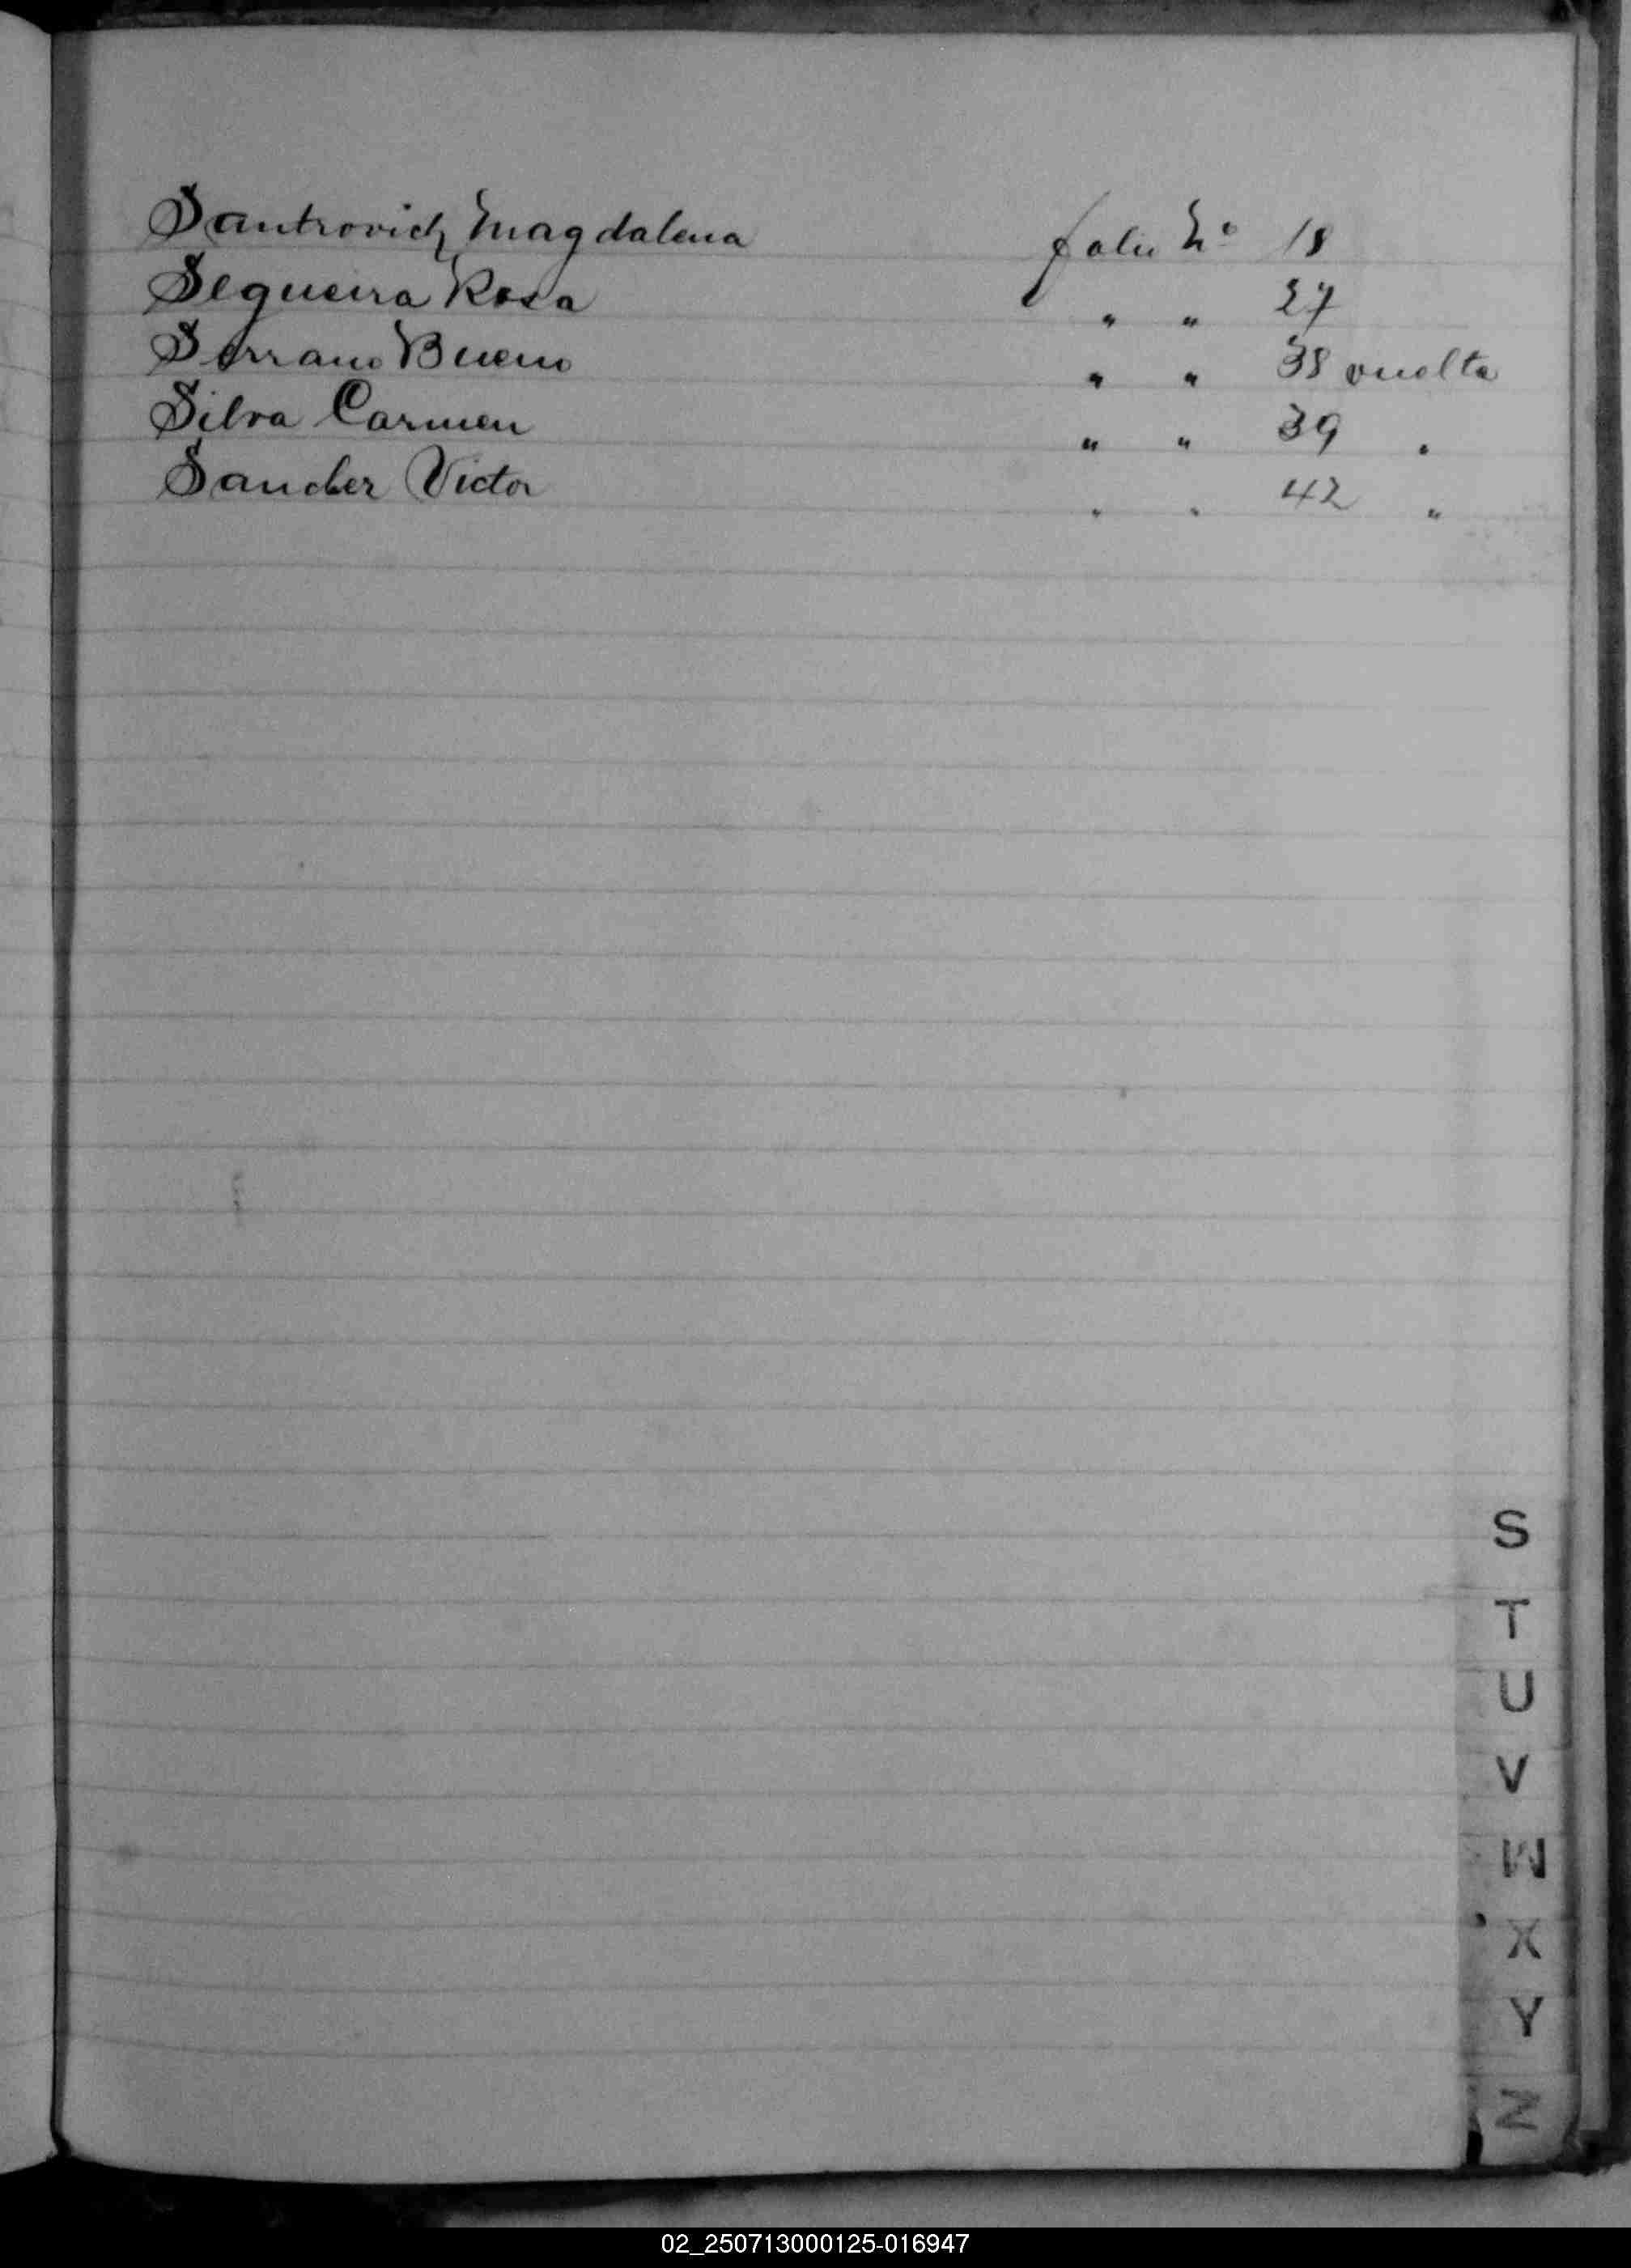 Santrovich Magdalena folio Nº 18
Segueira Rosa " " 27
Serrano Bueno " " 38 vuelta
Silva Carmen " " 39 "
Sanchez Victor " " 42 "
S
T
U
V
W
X
Y
Z
02_250713000125-016947